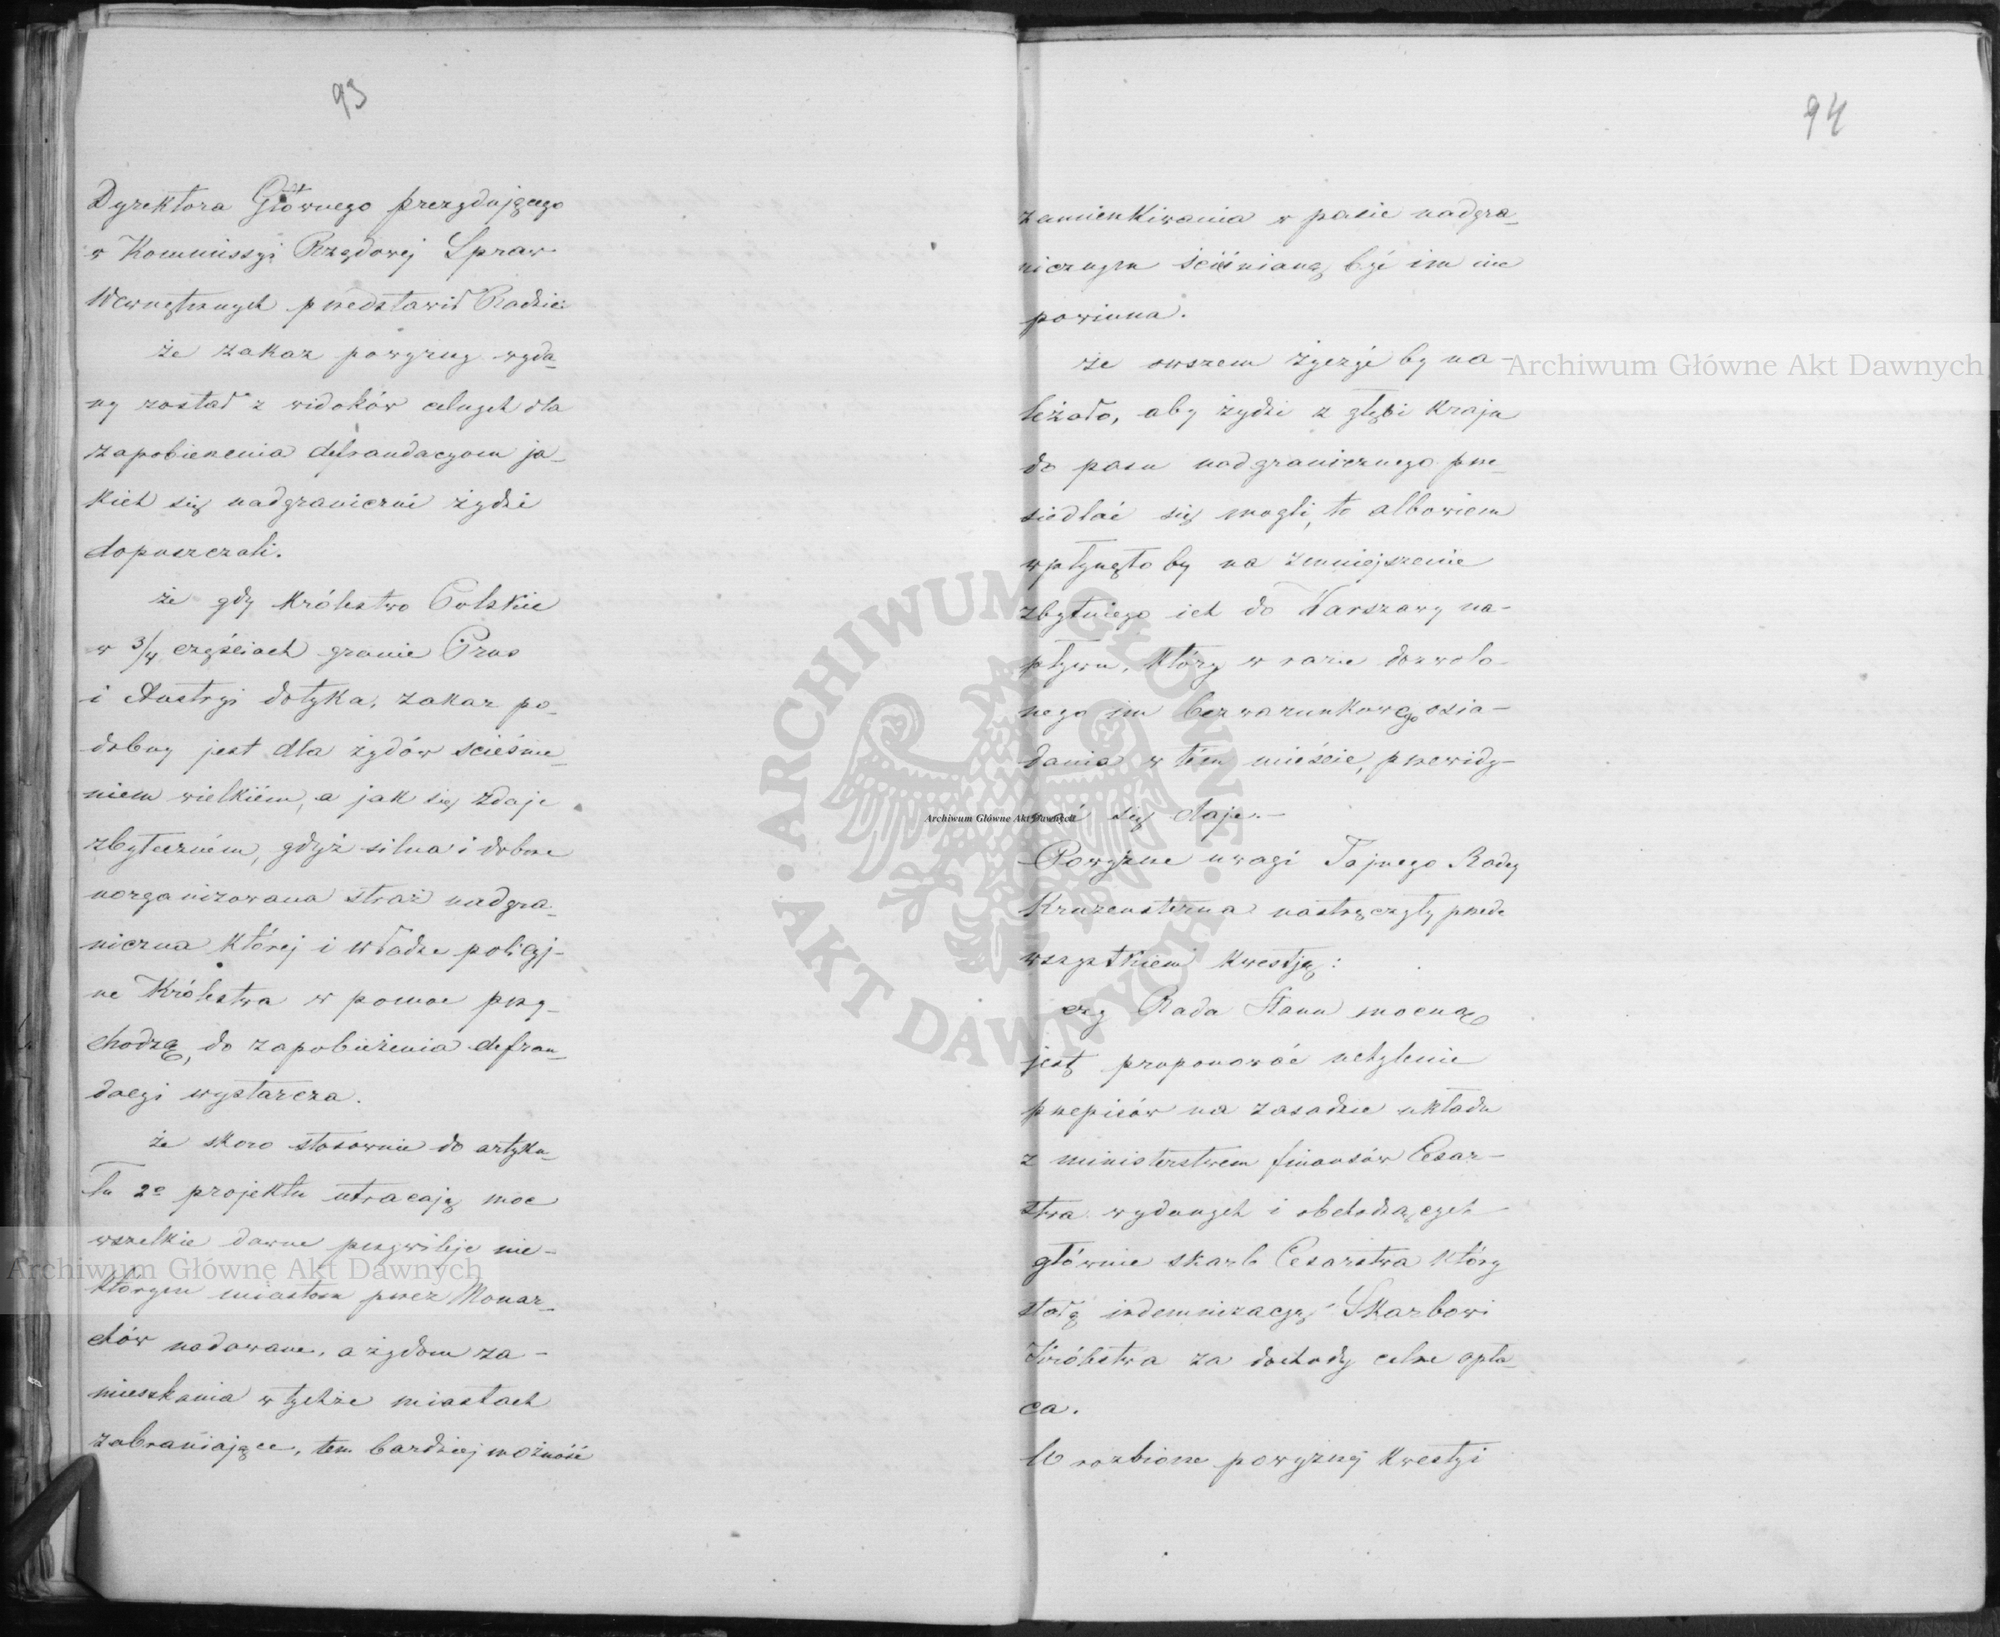 93
Dyrektora Głównego prezydującego
w Kommissyi Rządowej Spraw
Wewnętrznych przedstawił Radzie:
że zakaz powyższy wyda-
ny został z widoków celnych dla
zapobieżenia defraudacyom ja-
kich się nadgraniczni żydzi
dopuszczali.
że gdy Królestwo Polskie
w 3/4 częściach granic Prus
i Austryi dotyka, zakaz po-
dobny jest dla żydów ścieśnie-
niem wielkiém, a jak się zdaje
zbyteczném, gdyż silna i dobrze
uorganizowana straż nadgra-
niczna której i władze policyj-
ne Królestwa w pomoc przy-
chodzą, do zapobieżenia defrau-
dacyi wystarcza.
że skoro stosownie do artyku-
łu 2o projektu utracają moc
wszelkie dawne przywileje nie-
którym miastom przez Monar-
chów nadawane, a żydom za-
mieszkania w tychże miastach
zabraniające, tem bardziej możność
94
zamieszkiwania w pasie nadgra-
nicznym ścieśnianą być im nie
powinna.
że owszem życzyć by na-
leżało, aby żydzi z głębi kraju
do pasu nadgranicznego prze-
siedlać się mogli, to albowiem
wpłynęło by na zmniejszenie
zbytniego ich do Warszawy na-
pływu, który w razie dozwolo-
nego im bezwarunkowego osia-
dania w tém mieście, przewidy-
wać się daje.-
Powyższe uwagi Tajnego Radcy
Kruzensterna nastręczyły przede
wszystkiem kwestją:
czy Rada Stanu mocną
jest proponować uchylenie
przepisów na zasadzie układu
z ministerstwem finansów Cesar-
stwa wydanych i obchodzących
głównie skarb Cesarstwa który
stałą indemnizacyę Skarbowi
Królestwa za dochody celne opła-
ca.
W rozbiorze powyższej kwestyi
Archiwum Główne Akt Dawnych
Archiwum Główne Akt Dawnych
Archiwum Główne Akt Dawnych
ARCHIWUM GŁÓWNE · AKT DAWNYCH ·